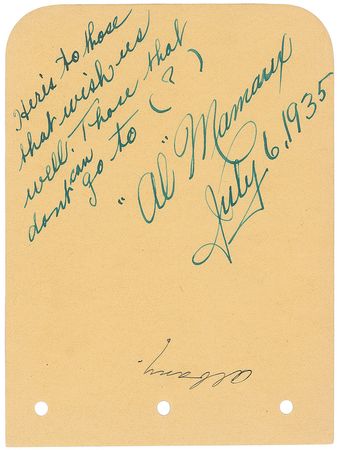 Here's to those
that wish us
well. Those that
dont can
go to (?)
"Al" Mamaux
July 6, 1935
Albany